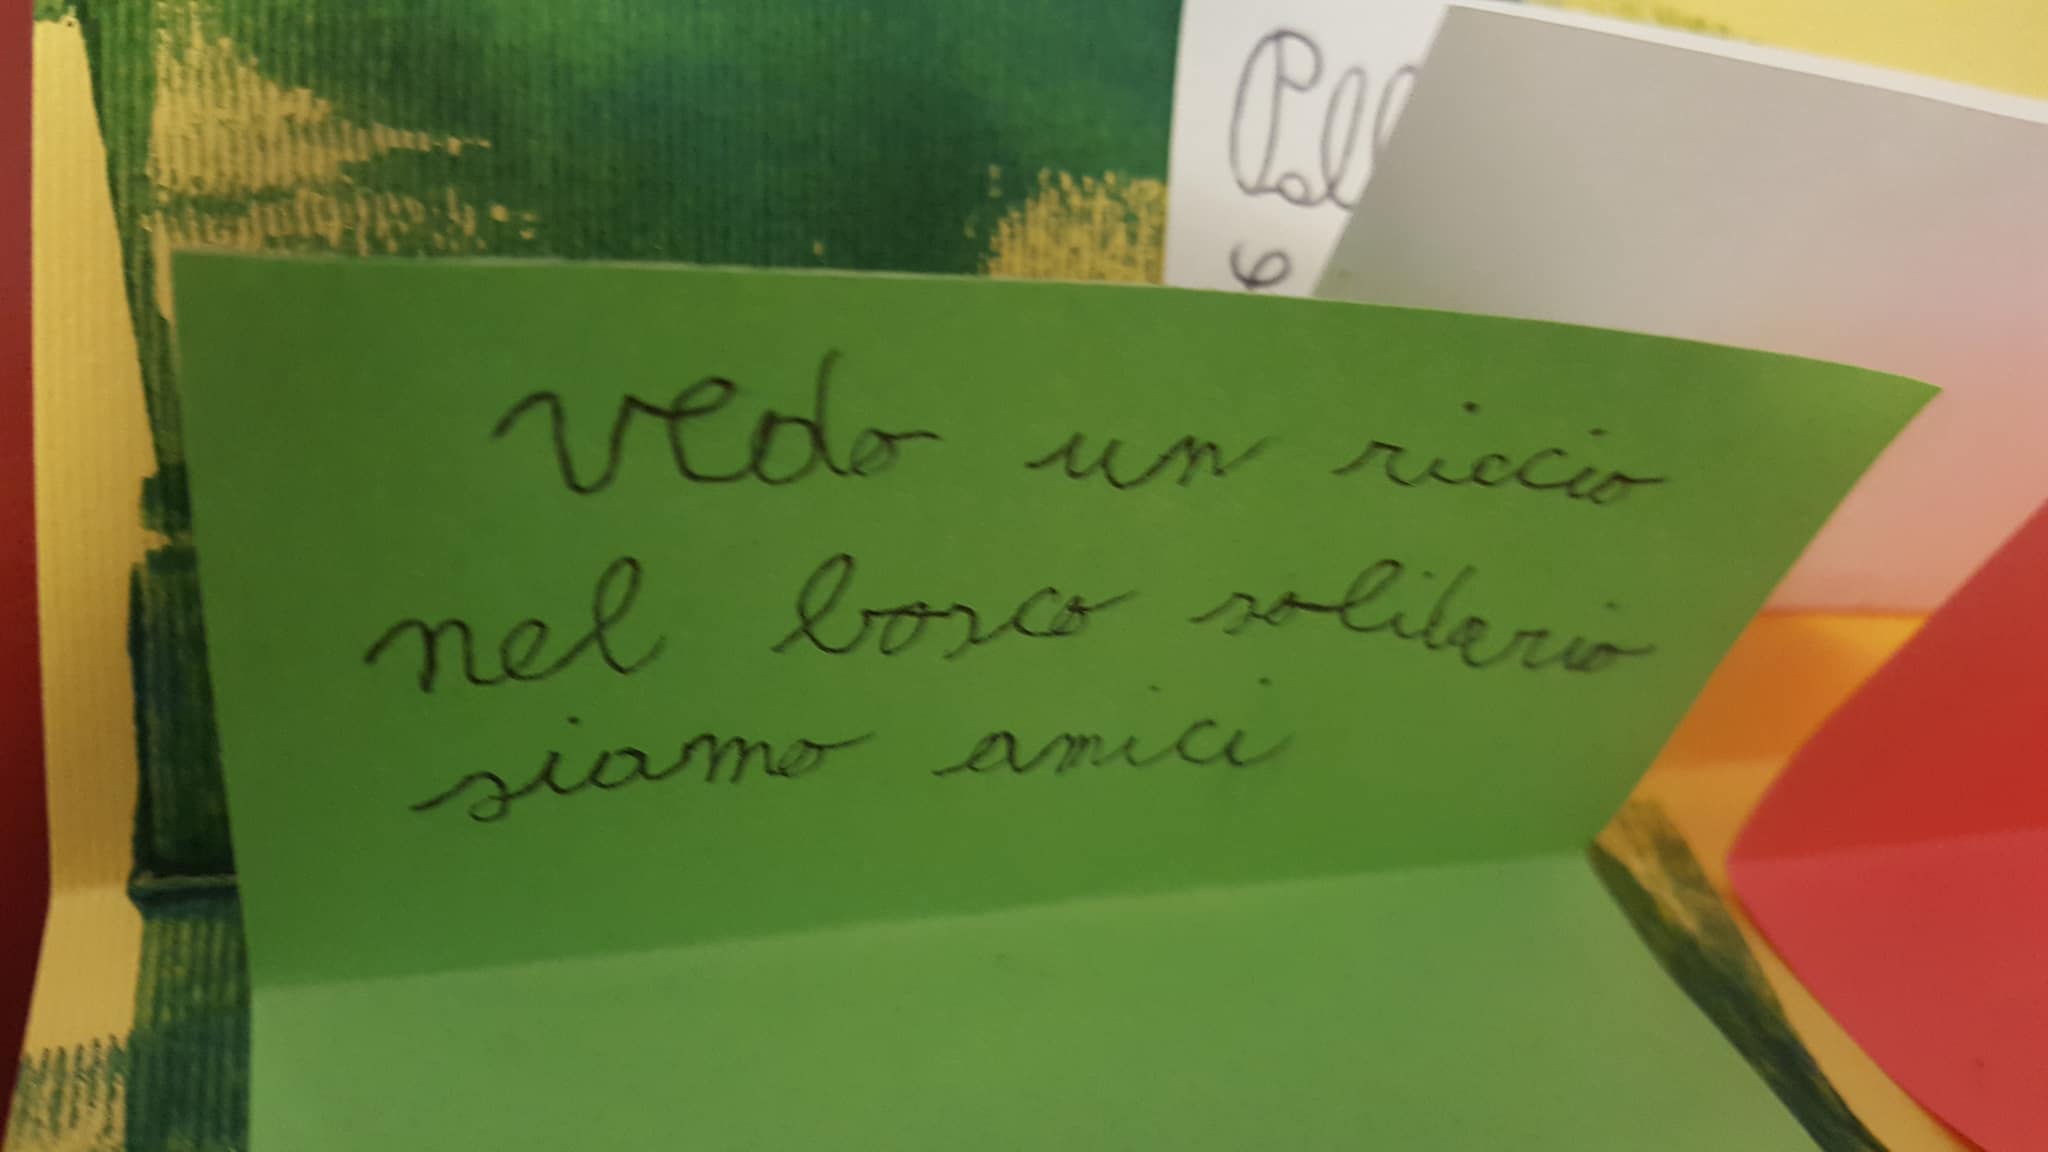 Vedo un riccio
nel bosco solitario
siamo amici